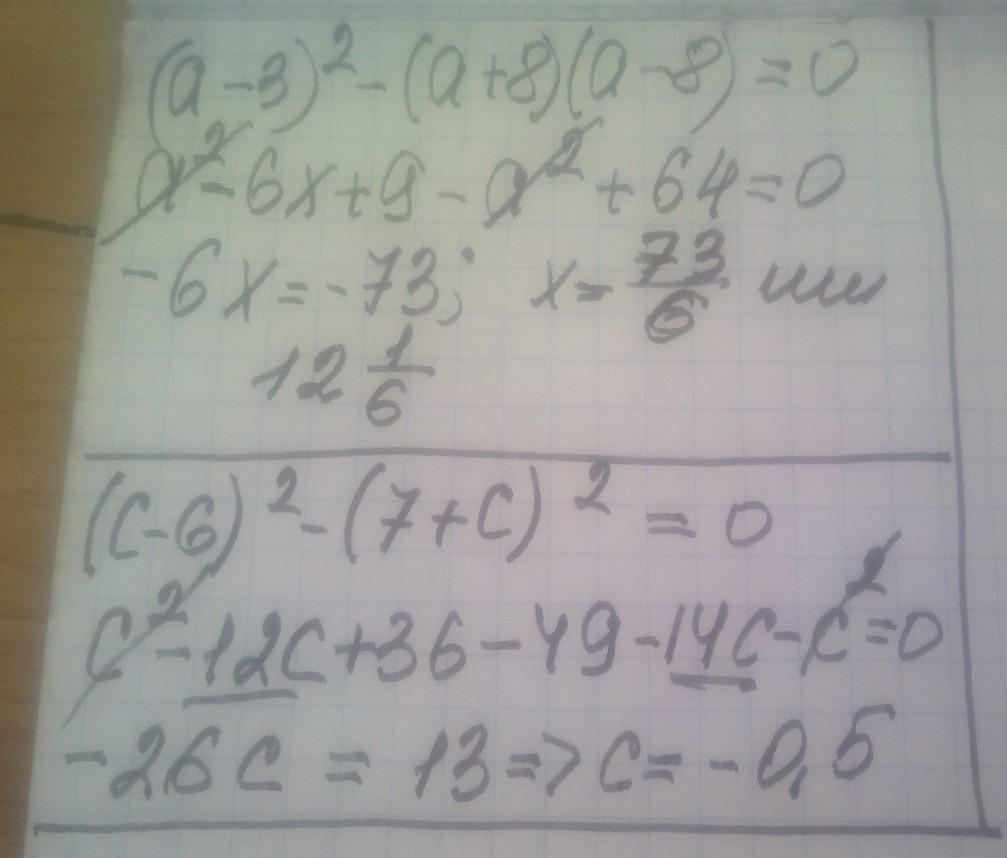 (a-3)² - (a+8)(a-8) = 0
a² - 6x + 9 - a² + 64 = 0
-6x = -73; x = 73/6 или
12 1/6
(c-6)² - (7+c)² = 0
c² - 12c + 36 - 49 - 14c - c² = 0
-26c = 13 => c = -0,5